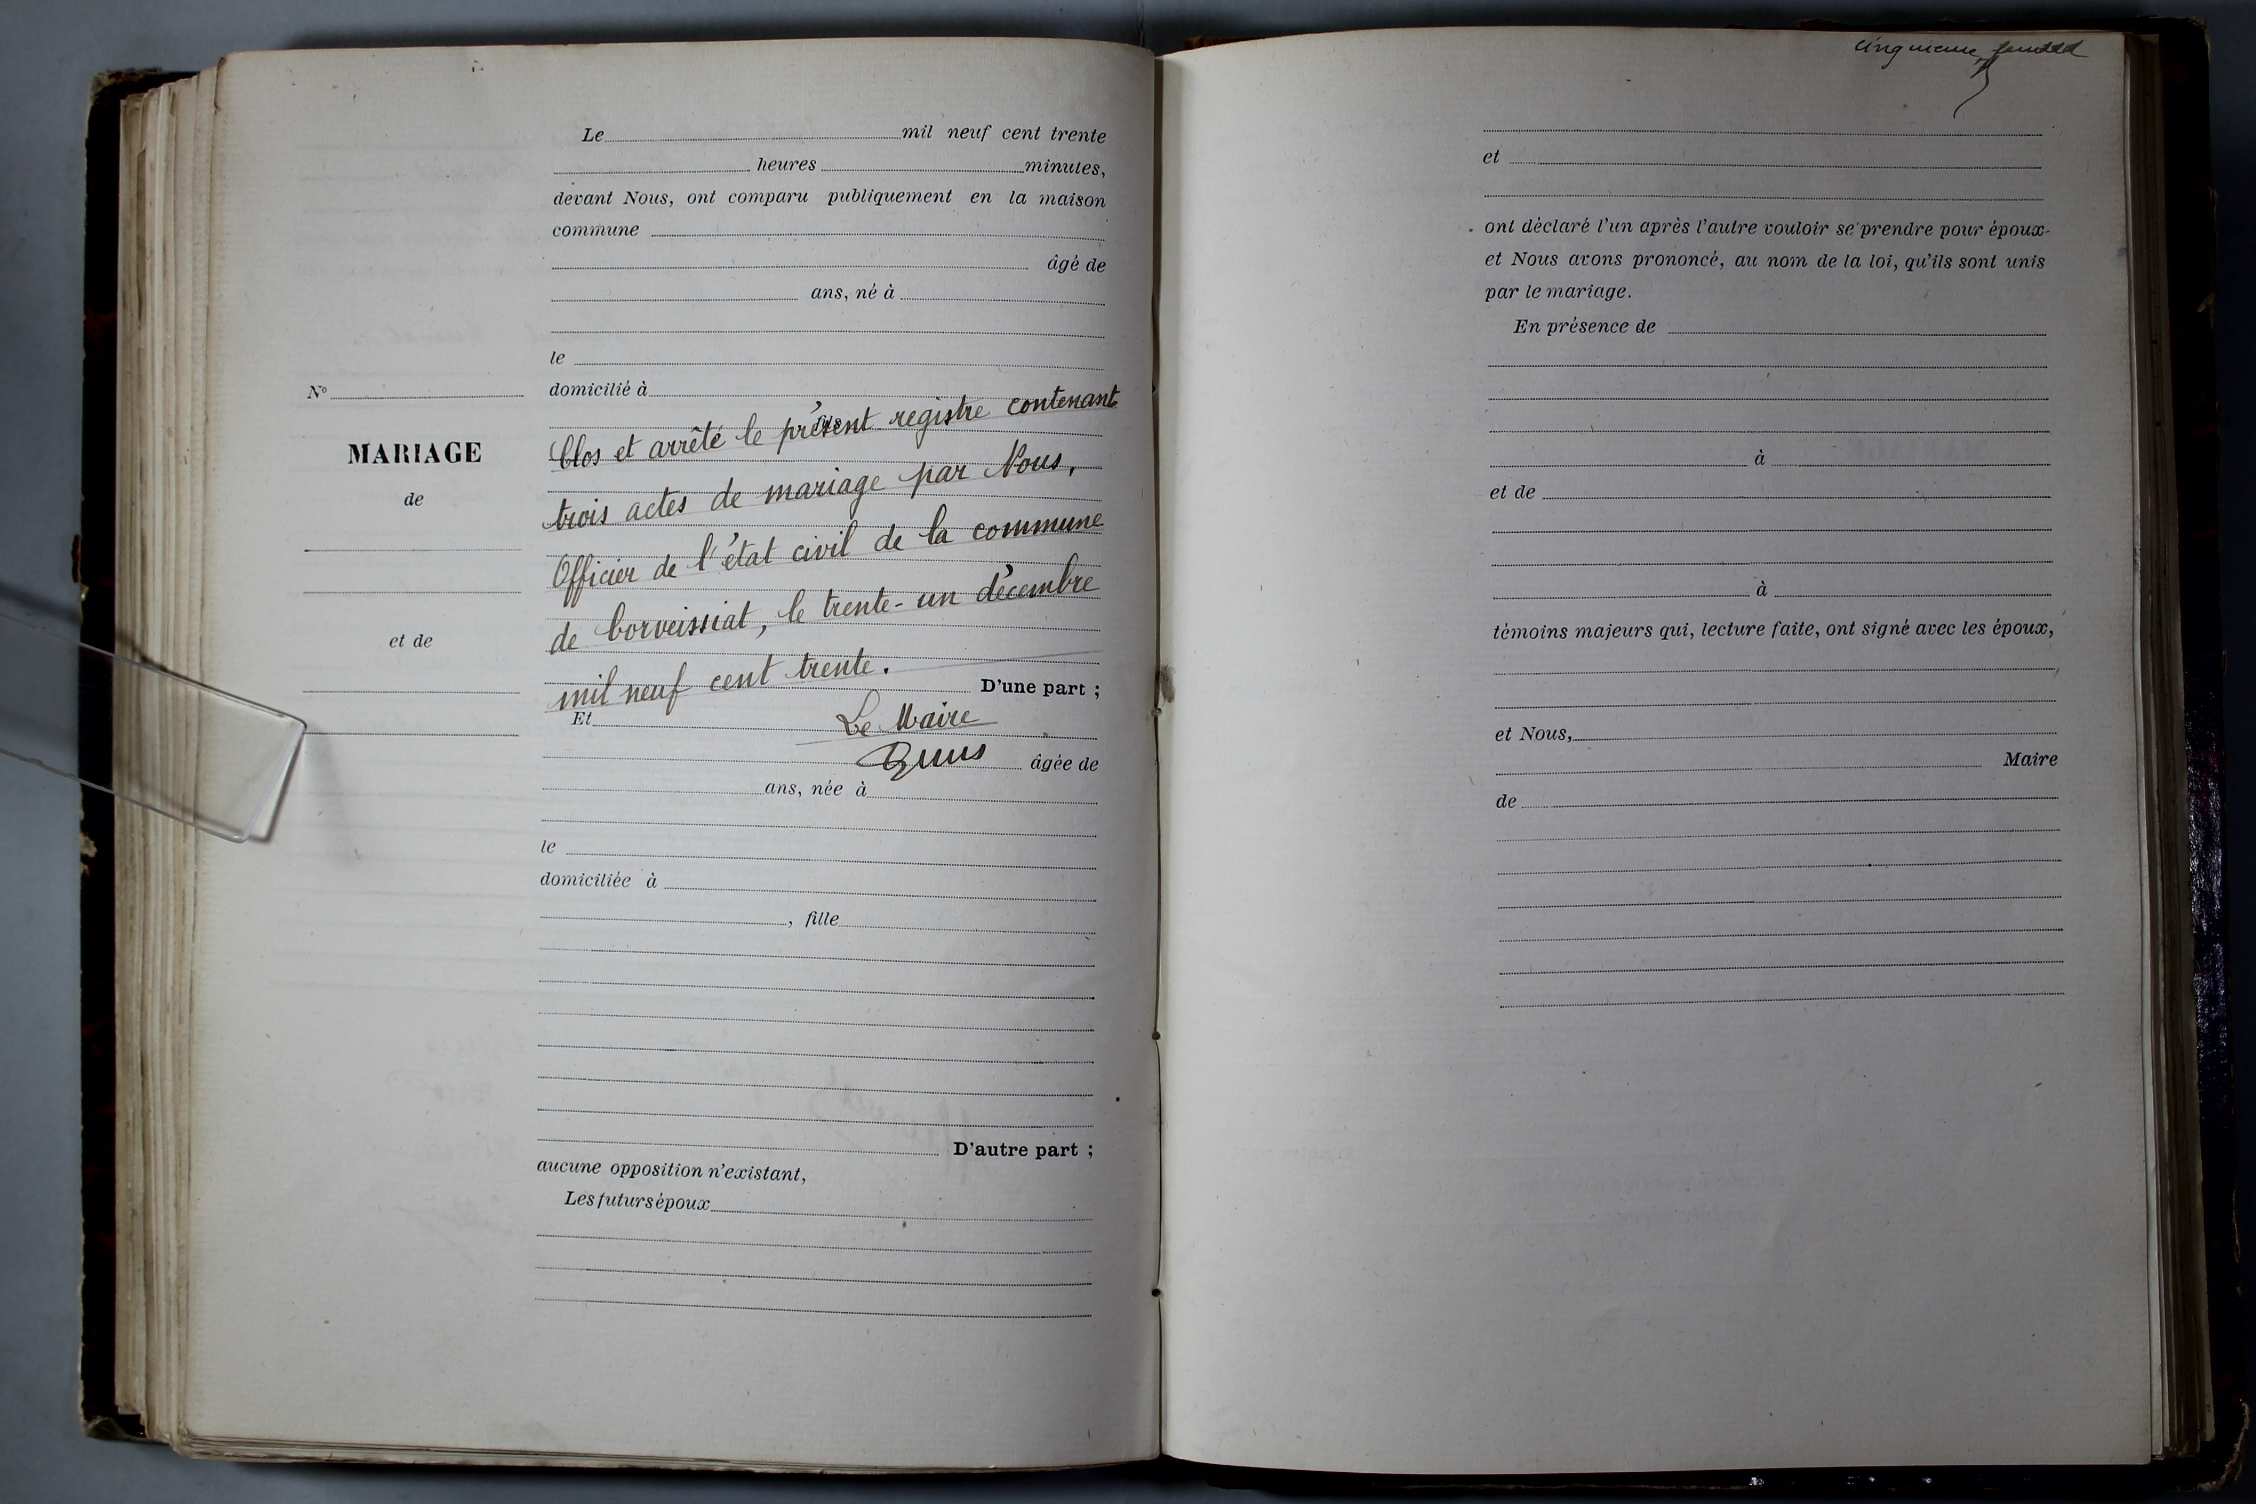 Le mil neuf cent trente
heures minutes,
devant Nous, ont comparu publiquement en la maison
commune
âgé de
ans, né à
le
domicilié à
fils
Clos et arrêté le présent registre contenant
trois actes de mariage par Nous,
Officier de l'état civil de la commune
de Corveissiat, le trente-un décembre
mil neuf cent trente.
D'une part ;
Et
Le Maire
âgée de
ans, née à
le
domiciliée à
, fille
D'autre part ;
aucune opposition n'existant,
Les futurs époux
N°
MARIAGE
de
et de
cinquième
et
ont déclaré l'un après l'autre vouloir se prendre pour époux
et Nous avons prononcé, au nom de la loi, qu'ils sont unis
par le mariage.
En présence de
à
et de
à
témoins majeurs qui, lecture faite, ont signé avec les époux,
et Nous,
Maire
de